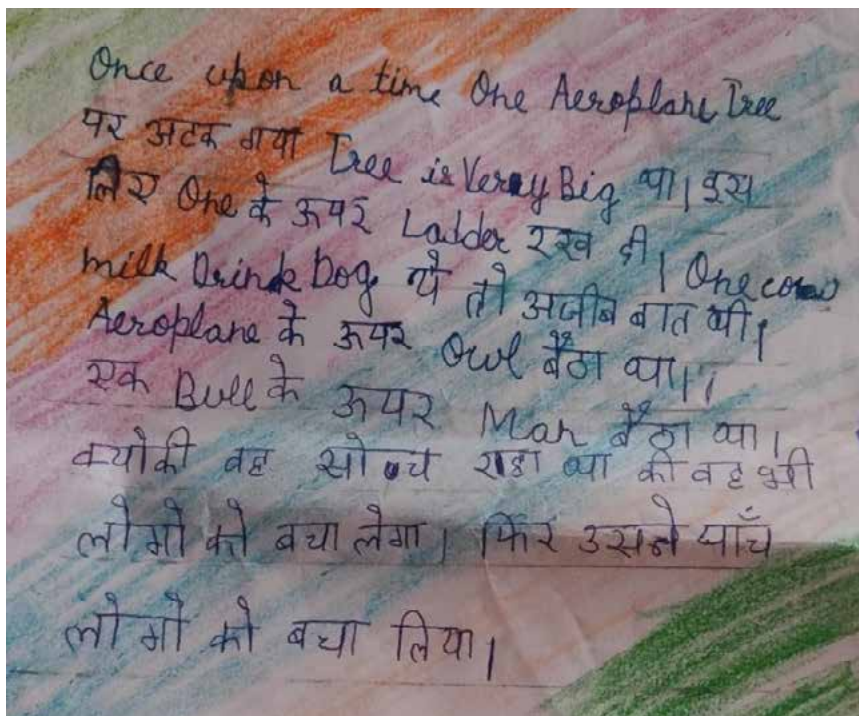 Once upon a time One Aeroplane Tree
पर अटक गया Tree is Very Big था। इस
लिए One के ऊपर Ladder रख दी। One cow
milk Drink Dog ये तो अजीब बात थी।
Aeroplane के ऊपर Owl बैठा था।
एक Bull के ऊपर Man बैठा था।
क्योकी वह सोच राहा था की वह भी
लोगो को बचा लेगा। फिर उसने पाँच
लोगो को बचा लिया।